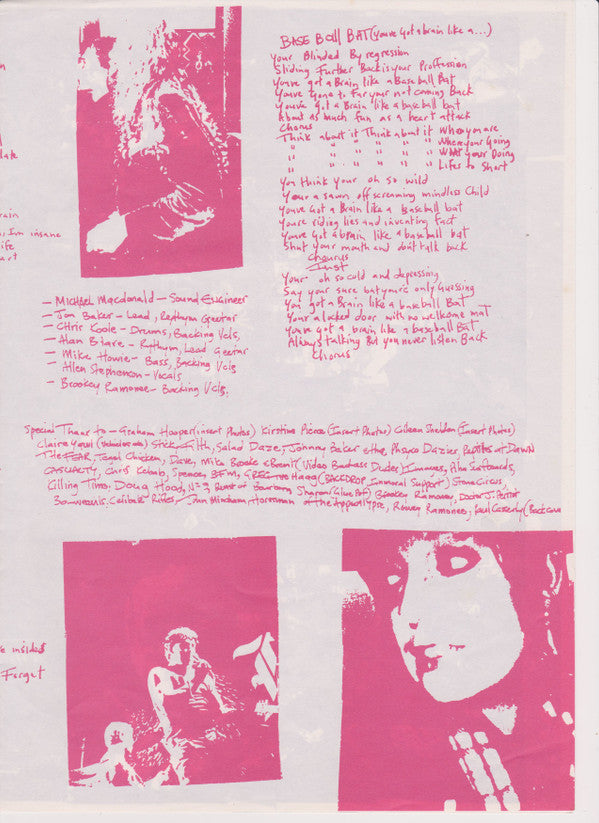 late
rain
, I'm insane
ife
art
BASE BALL BAT (you've Got a brain like a...)
Your Blinded By regression
Sliding Further Back is your Proffession
You've got a Brain like a Base ball Bat
You've Gone to Far your not coming Back
You've Got a Brain like a baseball bat
About as much fun as a heart attack
Chorus
Think about it Think about it Where you are
" " " " " " Where your Going
" " " " " " What your Doing
" " " " " " Lifes to Short
You think your oh so wild
Your a sawn off screaming mindless Child
You've Got a Brain like a baseball bat
You're riding lies and inventing fact
You've Got a brain like a baseball bat
Shut your mouth and don't talk back
Chourus
Inst
Your oh so cold and depressing
Say your sure but your only Guessing
You got a Brain like a baseball Bat
Your a locked door with no wellcome mat
You've got a brain like a baseball Bat
Always talking But you never listen Back
Chorus
- Michael Macdonald - Sound Engineer
- Jon Baker - Lead, Rythum Geetar
- Chris Koole - Drums, Backing Vcls,
- Alan Blare - Rythum, Lead Geetar
- Mike Howie - Bass, Backing Vcls
- Allen Stephenson - Vocals
- Brookey Ramonee - Backing Vcls,
Special Thanx to - Graham Hooper (insert Photos) Kirstine Pierce (Insert Photos) Colleen Sheldon (Insert Photos)
Claire Yaqui Stick Filth, Salad Daze, Johnny Baker + the Physco Dazies, at Dawn
The FEAR, Tengil Chicken, Dave, Mike Brooke + Benit (Video Badass Dudes) Immares, Pipe Skateboards,
CASUALTY, Chris Kelab, Spencer BFM, GREG Haag (BACKDROP, Immoral Support) Stone Circus,
Killing Time, Doug Hood, N-3, Burst of Bourbon, Sharon (Glue Pot) Brookey Ramoney, Doctor J. Perrot
3 Celibate Rifles, Jan Mincham, Horsman of the Appocalypse, Romey Ramonee, Paul Casserly (Rock
e insides
Forget